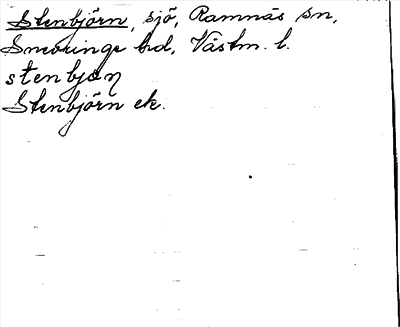 Stenbjörn, sjö, Ramnäs sn,
Snevringe hd, Västm. l.
stenbjøɳ
Stenbjörn ek.